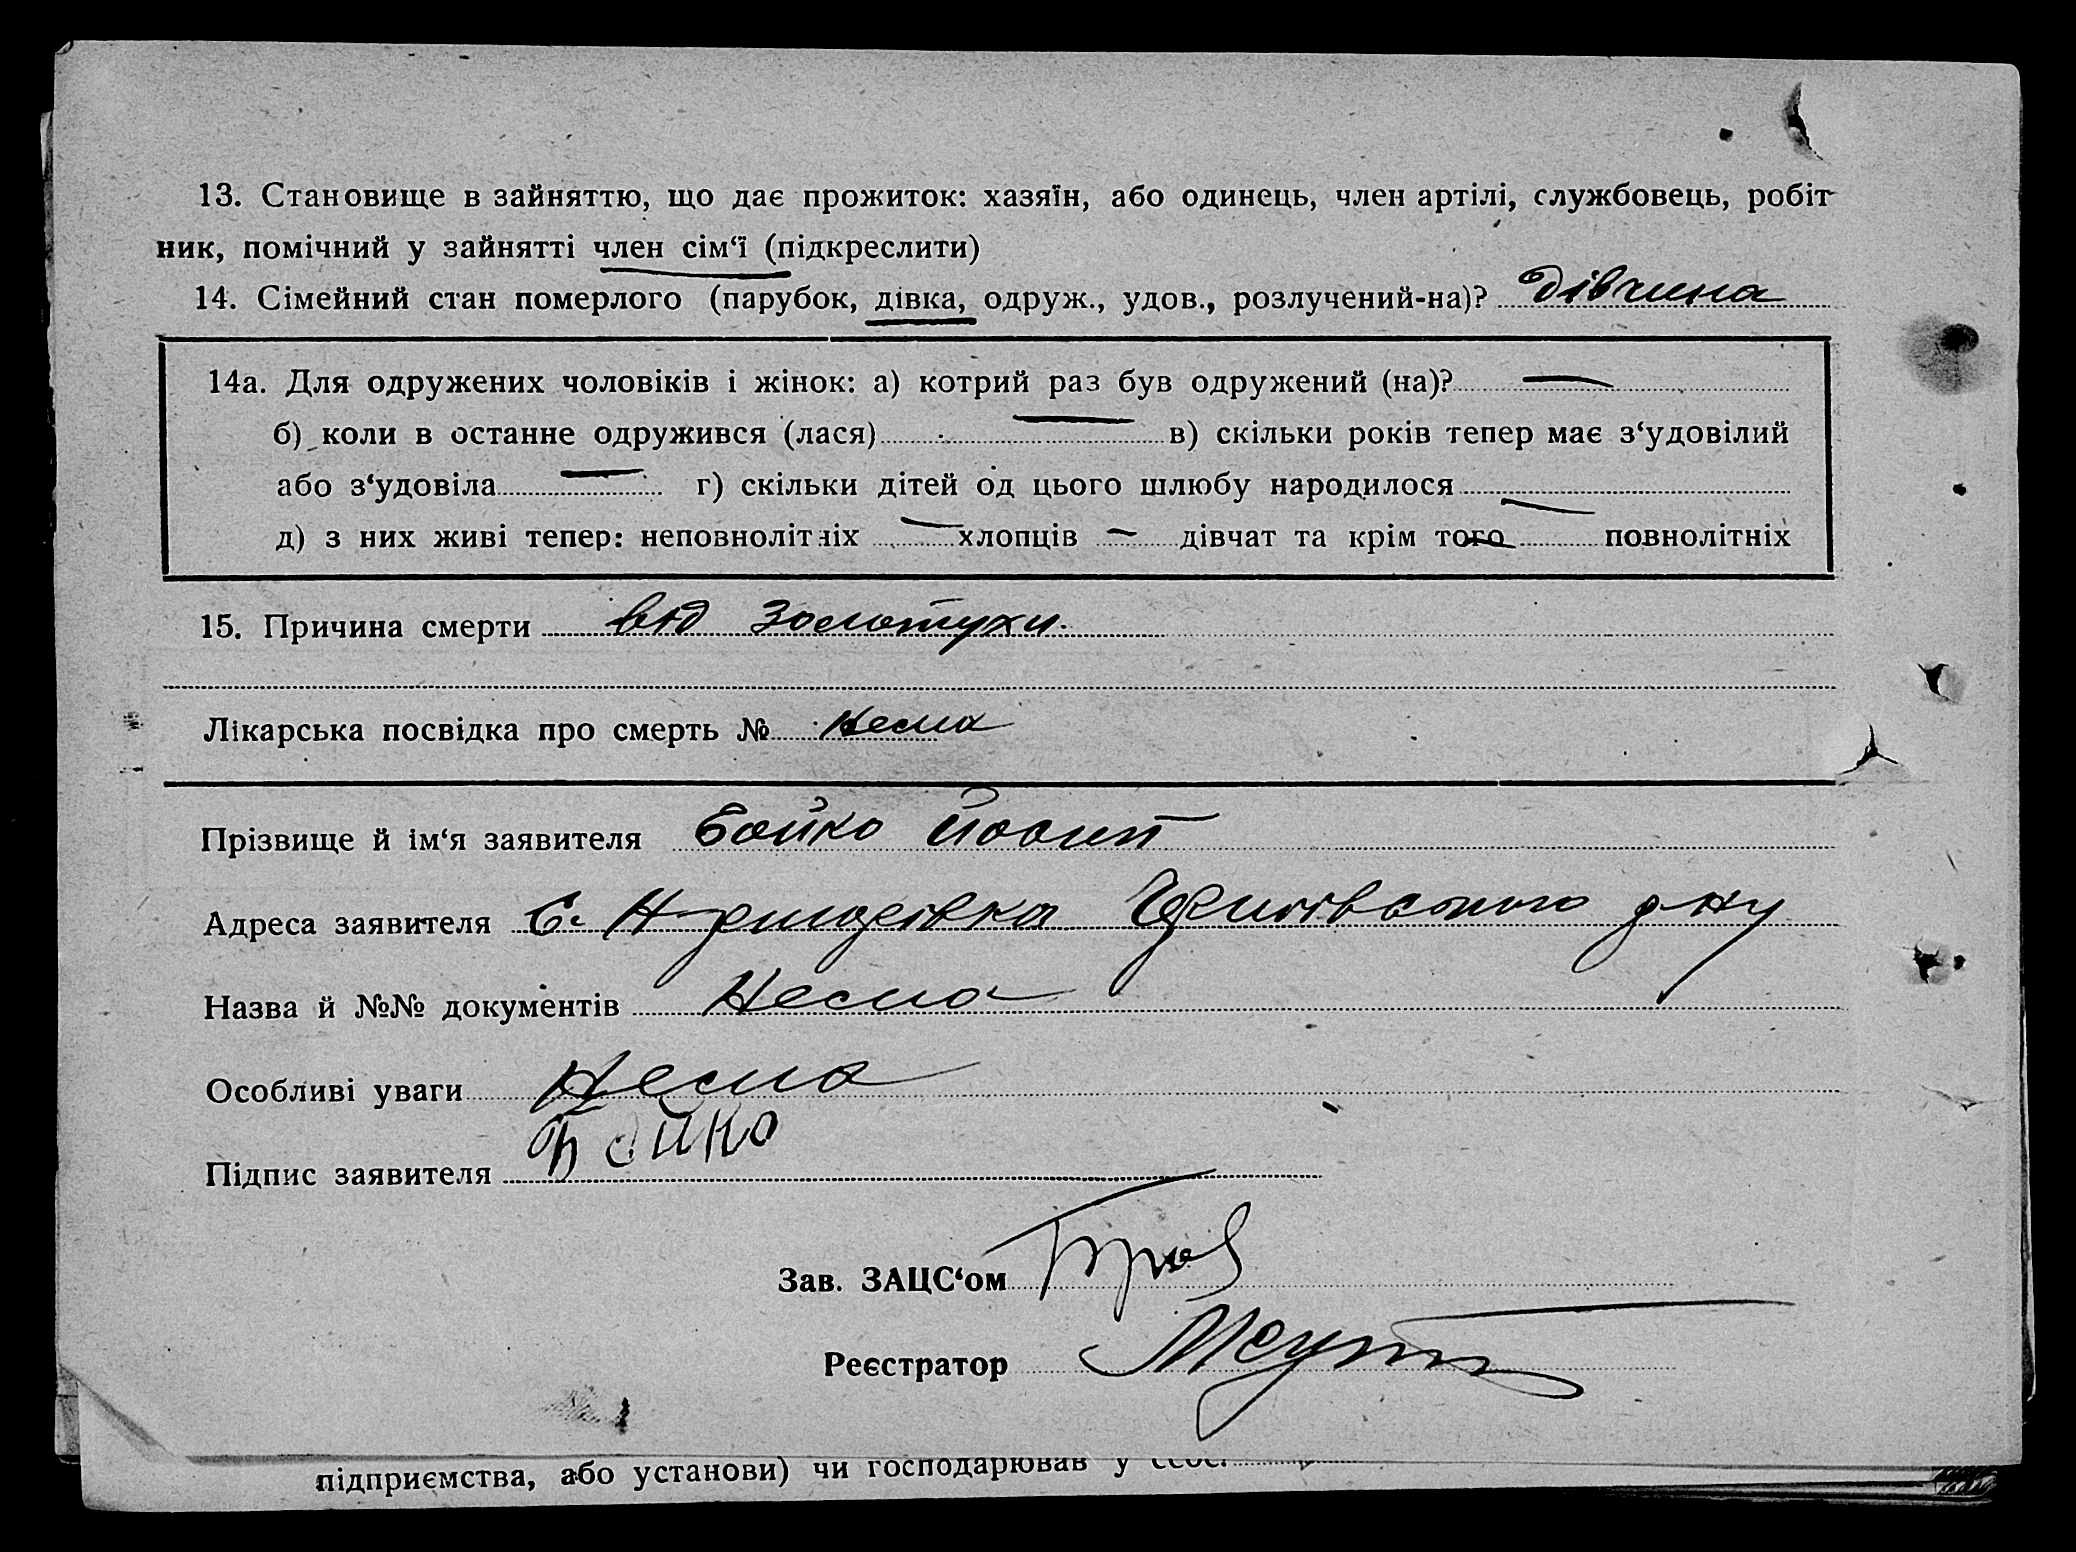 13. Становище в зайняттю, що дає прожиток: хазяїн, або одинець, член артілі, службовець, робіт-
ник, помічний у зайнятті член сім‘ї (підкреслити)
14. Сімейний стан померлого (парубок, дівка, одруж., удов., розлучений-на)? дівчина
14а. Для одружених чоловіків і жінок: а) котрий раз був одружений (на)? —
б) коли в останне одружився (лася) — в) скільки років тепер має з‘удовілий
або з‘удовіла — г) скільки дітей од цього шлюбу народилося —
д) з них живі тепер: неповнолітніх — хлопців — дівчат та крім того — повнолітніх
15. Причина смерти від золотухи.
Лікарська посвідка про смерть № Нема
Прізвище й ім‘я заявителя Бойко Йосип
Адреса заявителя С. р-ну
Назва й №№ документів Нема
Особливі уваги Нема
Підпис заявителя Бойко
Зав. ЗАЦС‘ом
Реєстратор
підприємства, або установи) чи господарював у себе?